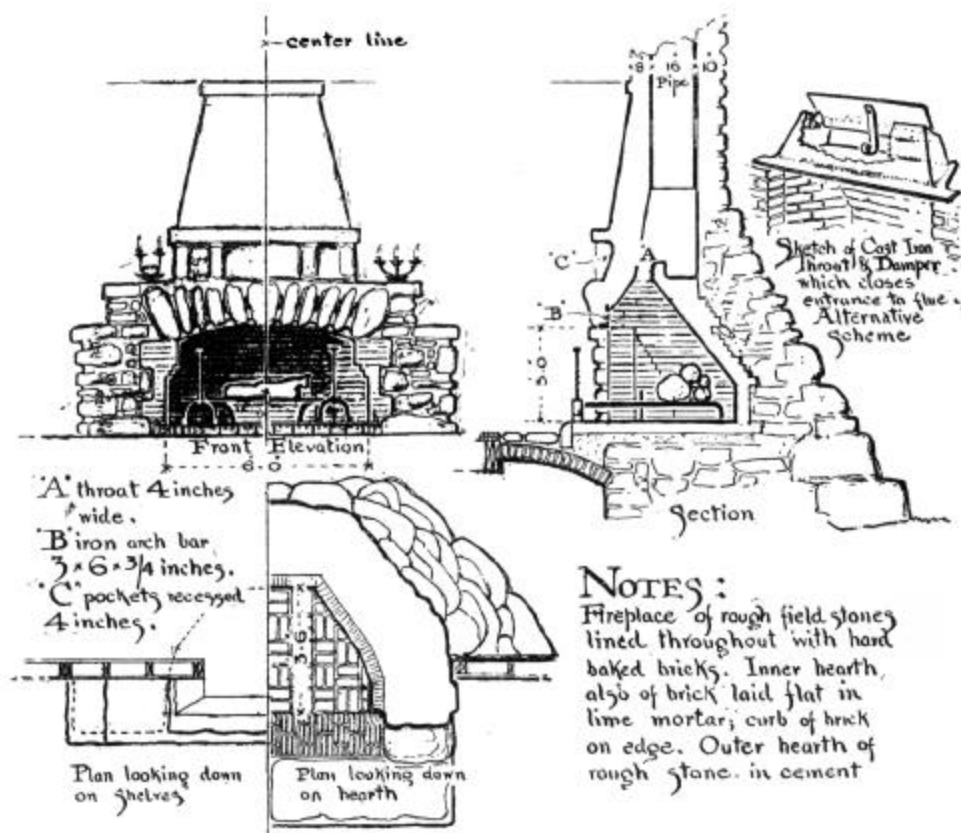 center line
8 16 10
Pipe
Sketch of Cast Iron
Throat & Damper
which closes
entrance to flue.
Alternative
Scheme
"C"
A
"B"
3.0
Front Elevation
6.0
Section
"A" throat 4 inches
wide.
"B" iron arch bar
3 × 6 × 3/4 inches.
"C" pockets recessed
4 inches.
3.6
Plan looking down
on shelves
Plan looking down
on hearth
NOTES:
Fireplace of rough field stones
lined throughout with hard
baked bricks. Inner hearth
also of brick laid flat in
lime mortar; curb of brick
on edge. Outer hearth of
rough stone in cement